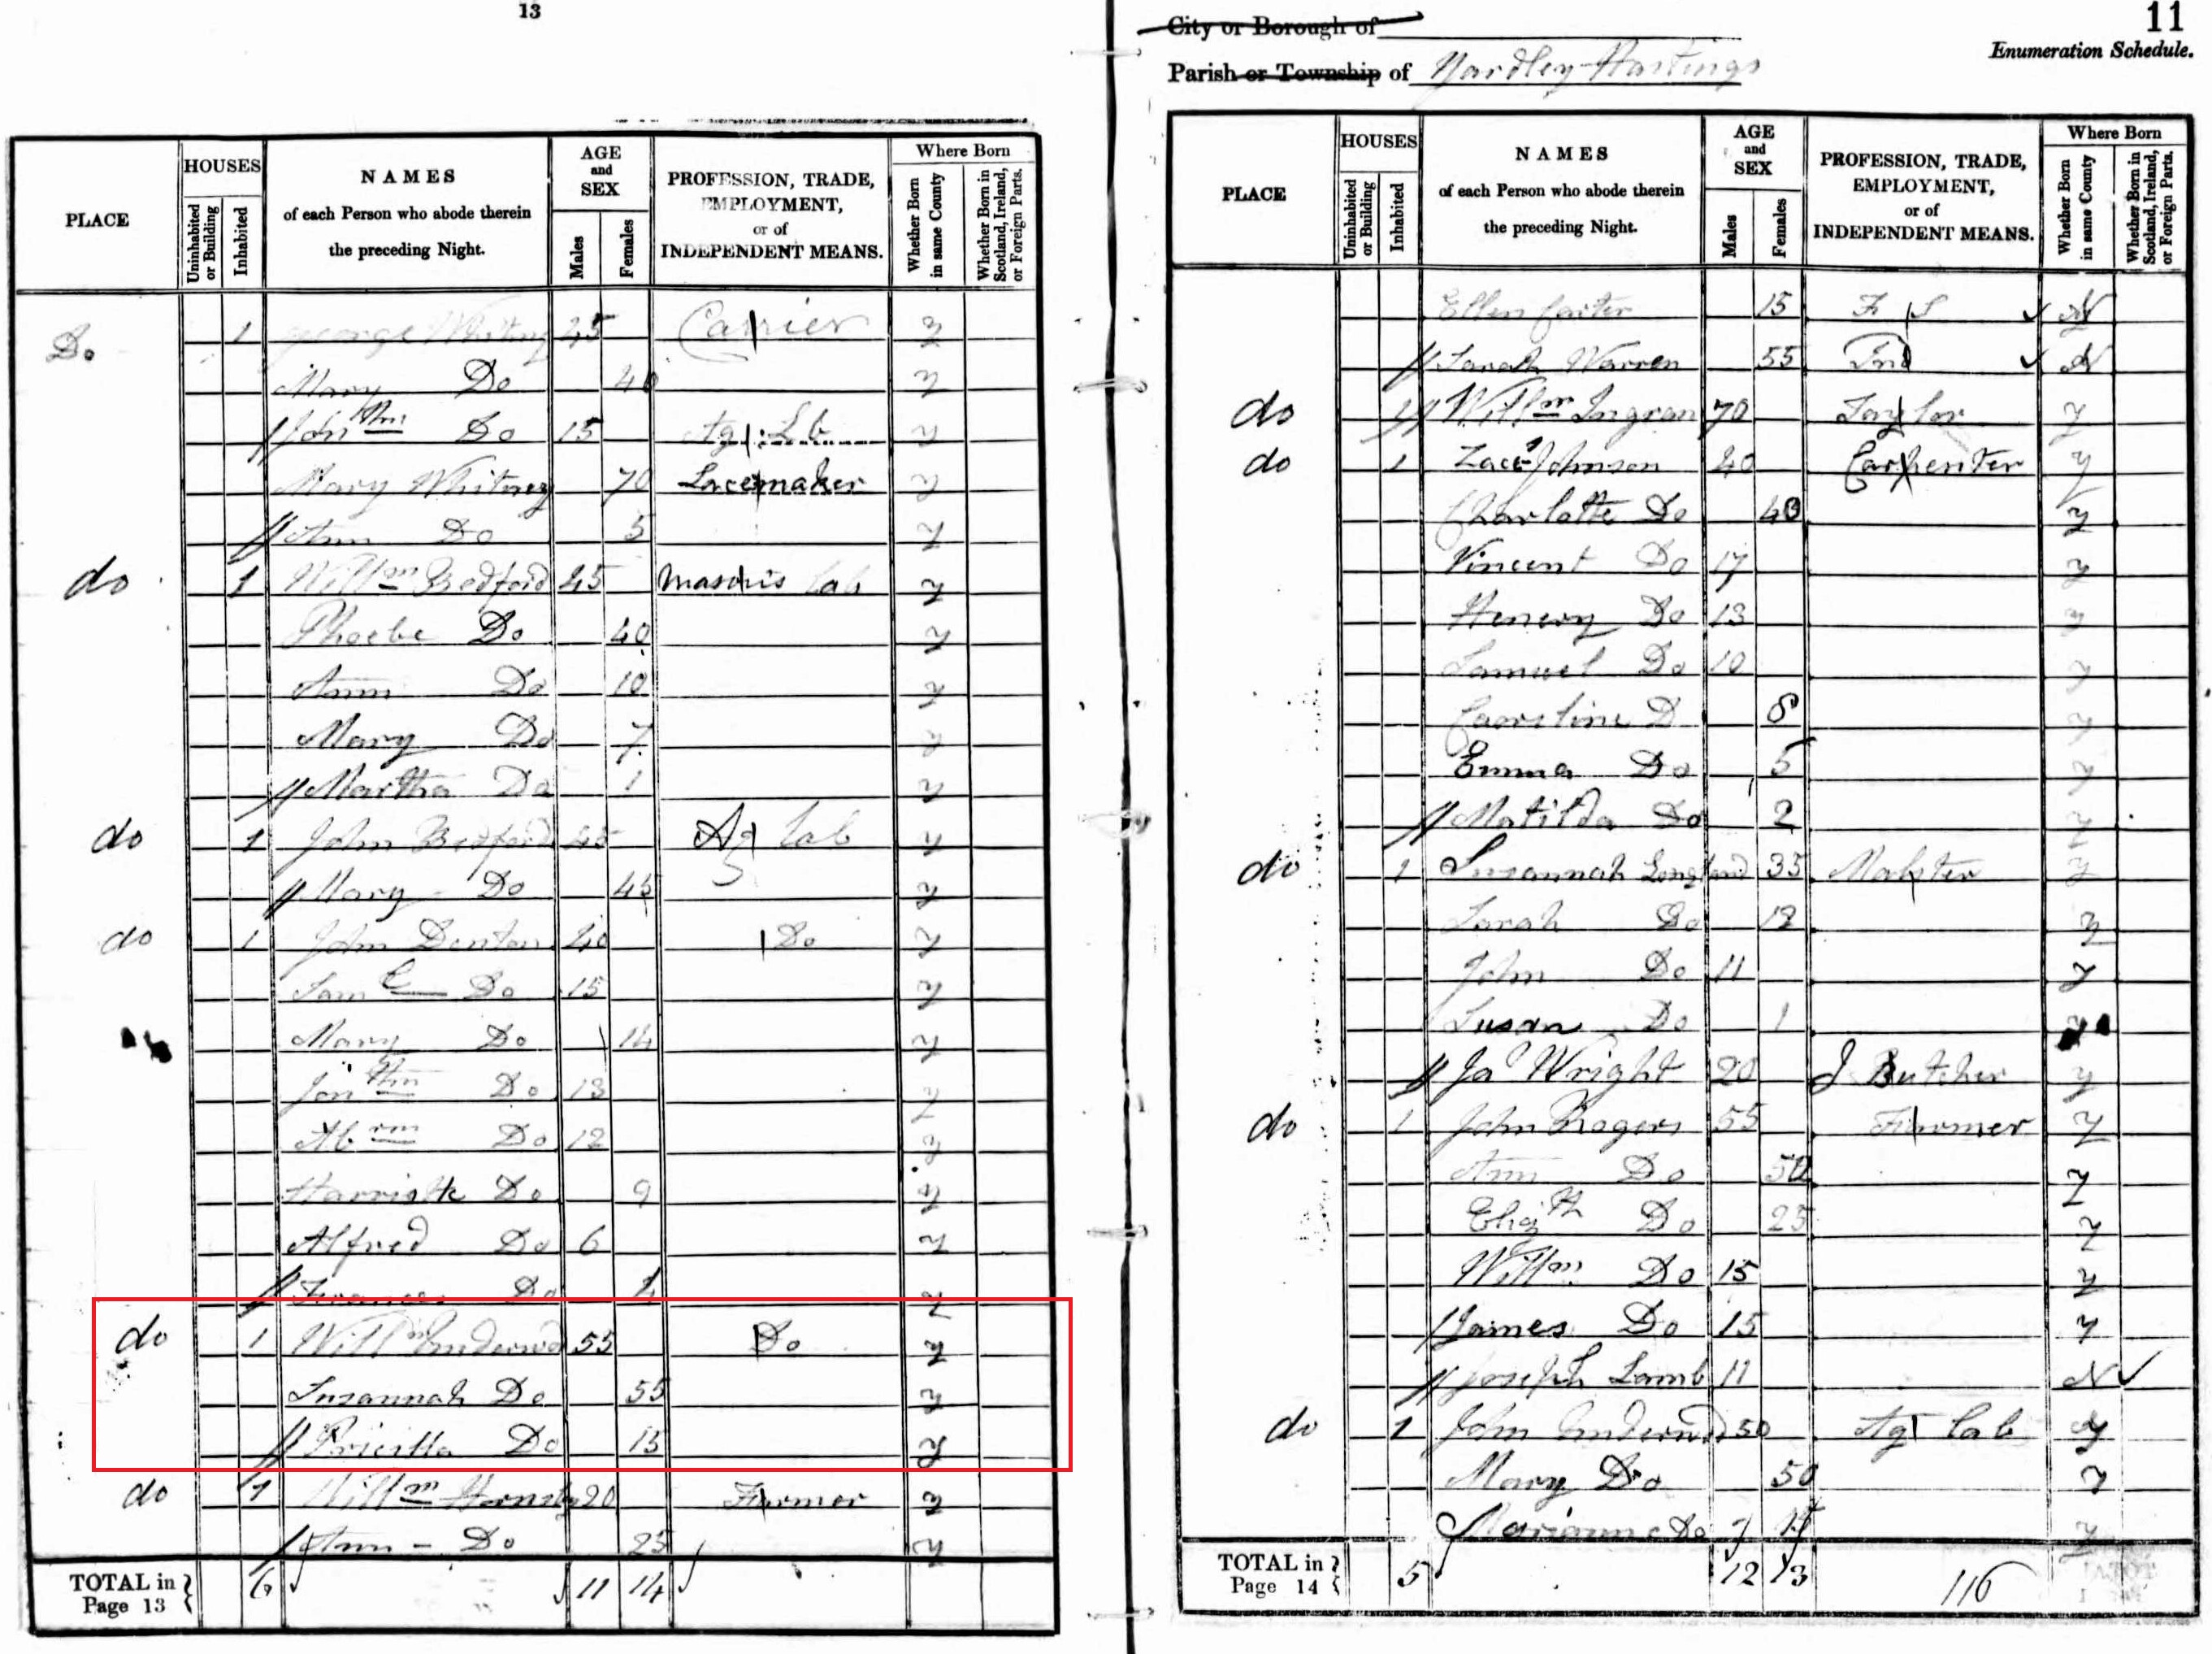 13
PLACE
HOUSES
Uninhabited or Building
Inhabited
NAMES
of each Person who abode therein
the preceding Night.
AGE and SEX
Males
Females
PROFESSION, TRADE,
EMPLOYMENT,
or of
INDEPENDENT MEANS.
Where Born
Whether Born in same County
Whether Born in Scotland, Ireland, or Foreign Parts.
Do 1 George Whitney 45 Carrier y
Mary Do 40 y
// Jon thn Do 15 Ag. Lb y
Mary Whitney 70 Lacemaker y
// Ann Do 5 y
do 1 Willm Bedford 45 masons lab y
Phoebe Do 40 y
Ann Do 10 y
Mary Do 7 y
// Martha Do 1 y
do 1 John Bedford 45 Ag lab y
// Mary Do 45 y
do 1 John Denton 40 Do y
Saml Do 15 y
Mary Do 14 y
Jon thn Do 13 y
Abrm Do 12 y
Do 9 y
Alfred Do 6 y
// Frances Do y
do 1 Willm Underwd 55 Do y
Suzannah Do 55 y
// Pricilla Do 15 y
do 1 Willm 20 Farmer y
// Ann - Do 25 y
TOTAL in Page 13 6 11 14
City or Borough of
11
Enumeration Schedule.
Parish or Township of Yardley Hastings
PLACE
HOUSES
Uninhabited or Building
Inhabited
NAMES
of each Person who abode therein
the preceding Night.
AGE and SEX
Males
Females
PROFESSION, TRADE,
EMPLOYMENT,
or of
INDEPENDENT MEANS.
Where Born
Whether Born in same County
Whether Born in Scotland, Ireland, or Foreign Parts.
Ellen Carter 15 F S N
// Sarah Warren 55 Ind N
do 1 // Willm Ingram 70 Taylor y
do 1 Johnson 40 Carpenter y
Charlotte Do 40 y
Vincent Do 17 y
Henery Do 13 y
Samuel Do 10 y
Caroline D 8 y
Emma Do 5 y
// Matilda Do 2 y
do 1 Suzannah Longland 35 Malster y
Sarah Do 12 y
John Do 11 y
Susan Do 1 y
// Ja Wright 20 J Butcher y
do 1 John Rogers 55 Farmer y
Ann Do 50 y
Elizth Do 25 y
Willm Do 15 y
/ James Do 15 y
// Joseph Lamb 11 N
do 1 John Underwd 50 Ag lab y
Mary Do 50 y
Marianne Do y
TOTAL in Page 14 5 12 13 116